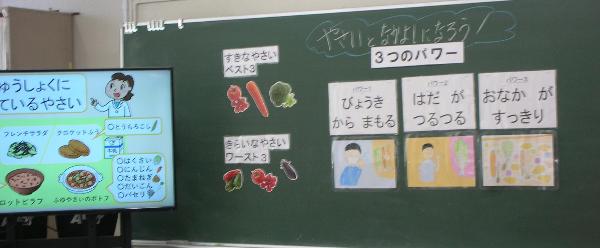 ゅうしょくに
ているやさい
フレンチサラダ
クロケットふう
○とうもろこし
○はくさい
○にんじん
○たまねぎ
○だいこん
○パセリ
ロットピラフ
ふゆやさいのポトフ
やさいとなかよしになろう！
3つのパワー
すきなやさい
ベスト3
きらいなやさい
ワースト3
パワー1
びょうき
から まもる
パワー2
はだ が
つるつる
パワー3
おなか が
すっきり